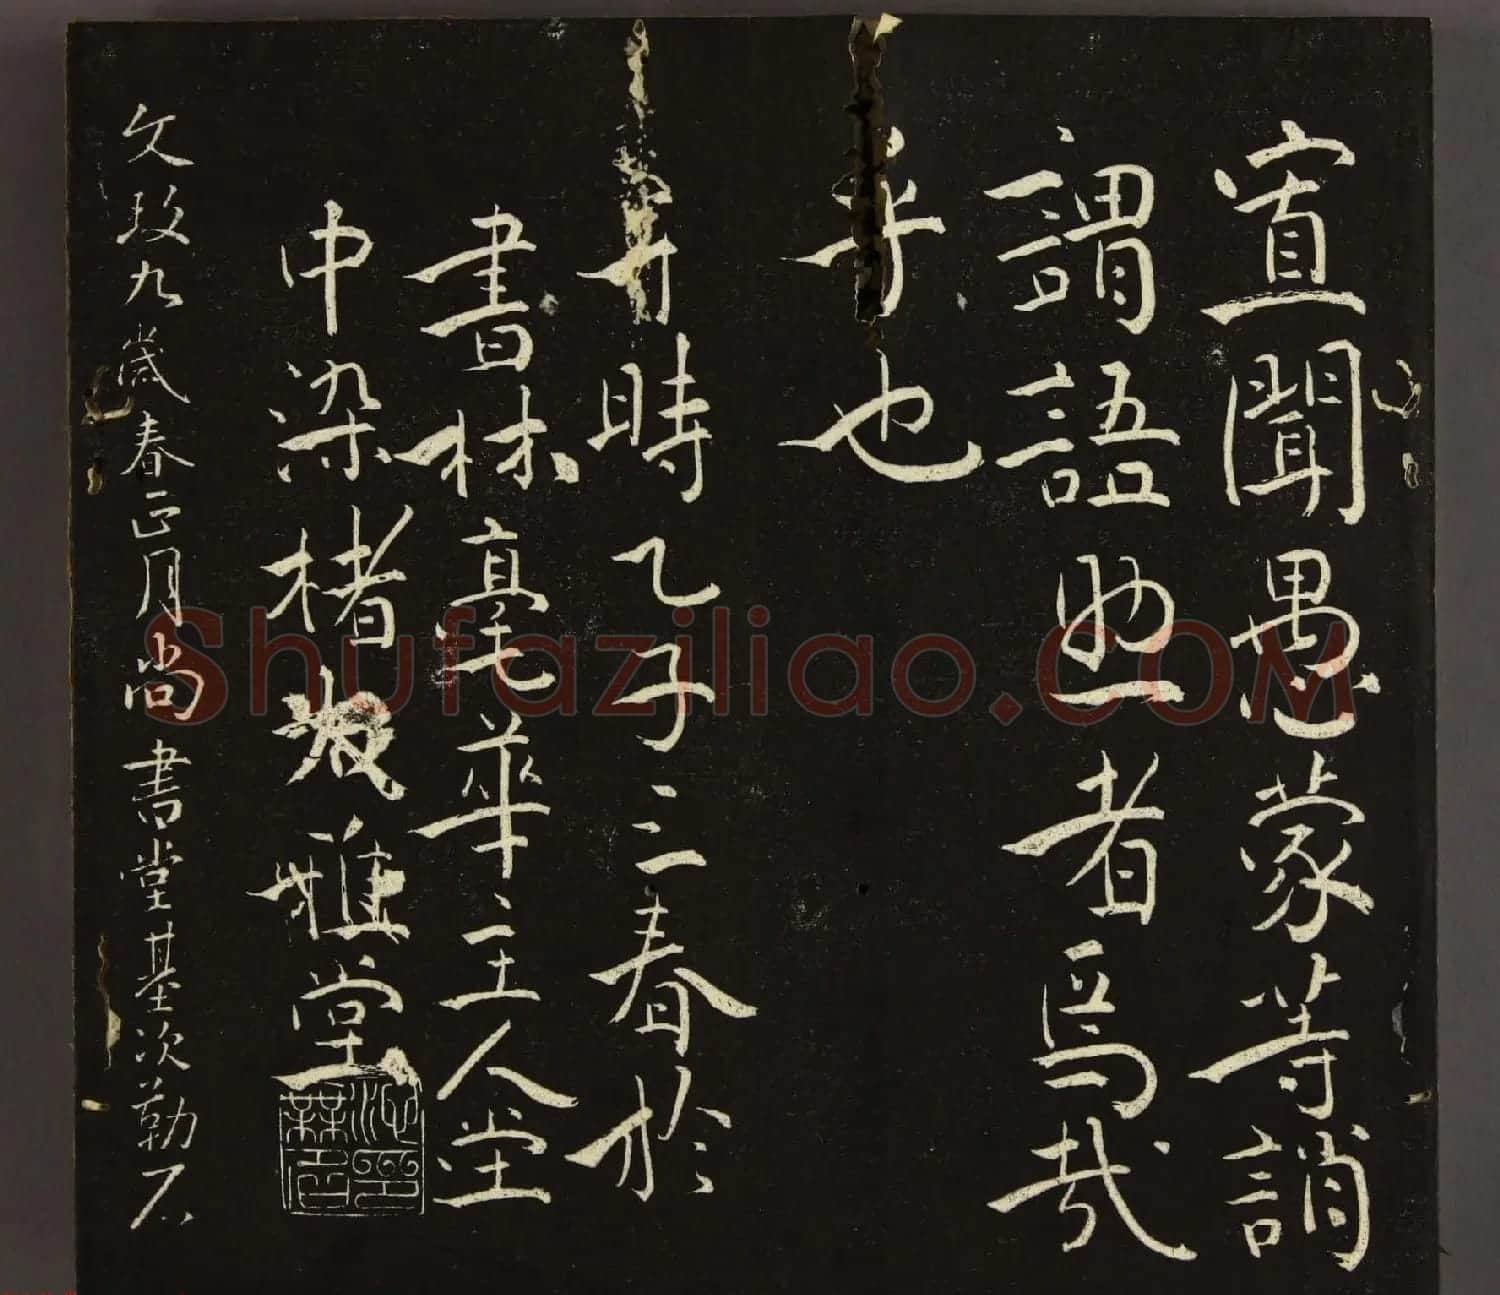 宣聞愚蒙等誚
謂語助者焉哉
乎也
時乙子三春於
書林亳華主人堂
中染楮 雅堂
文政九歲春正月尚書堂基次勒石
Shufaziliao.COM